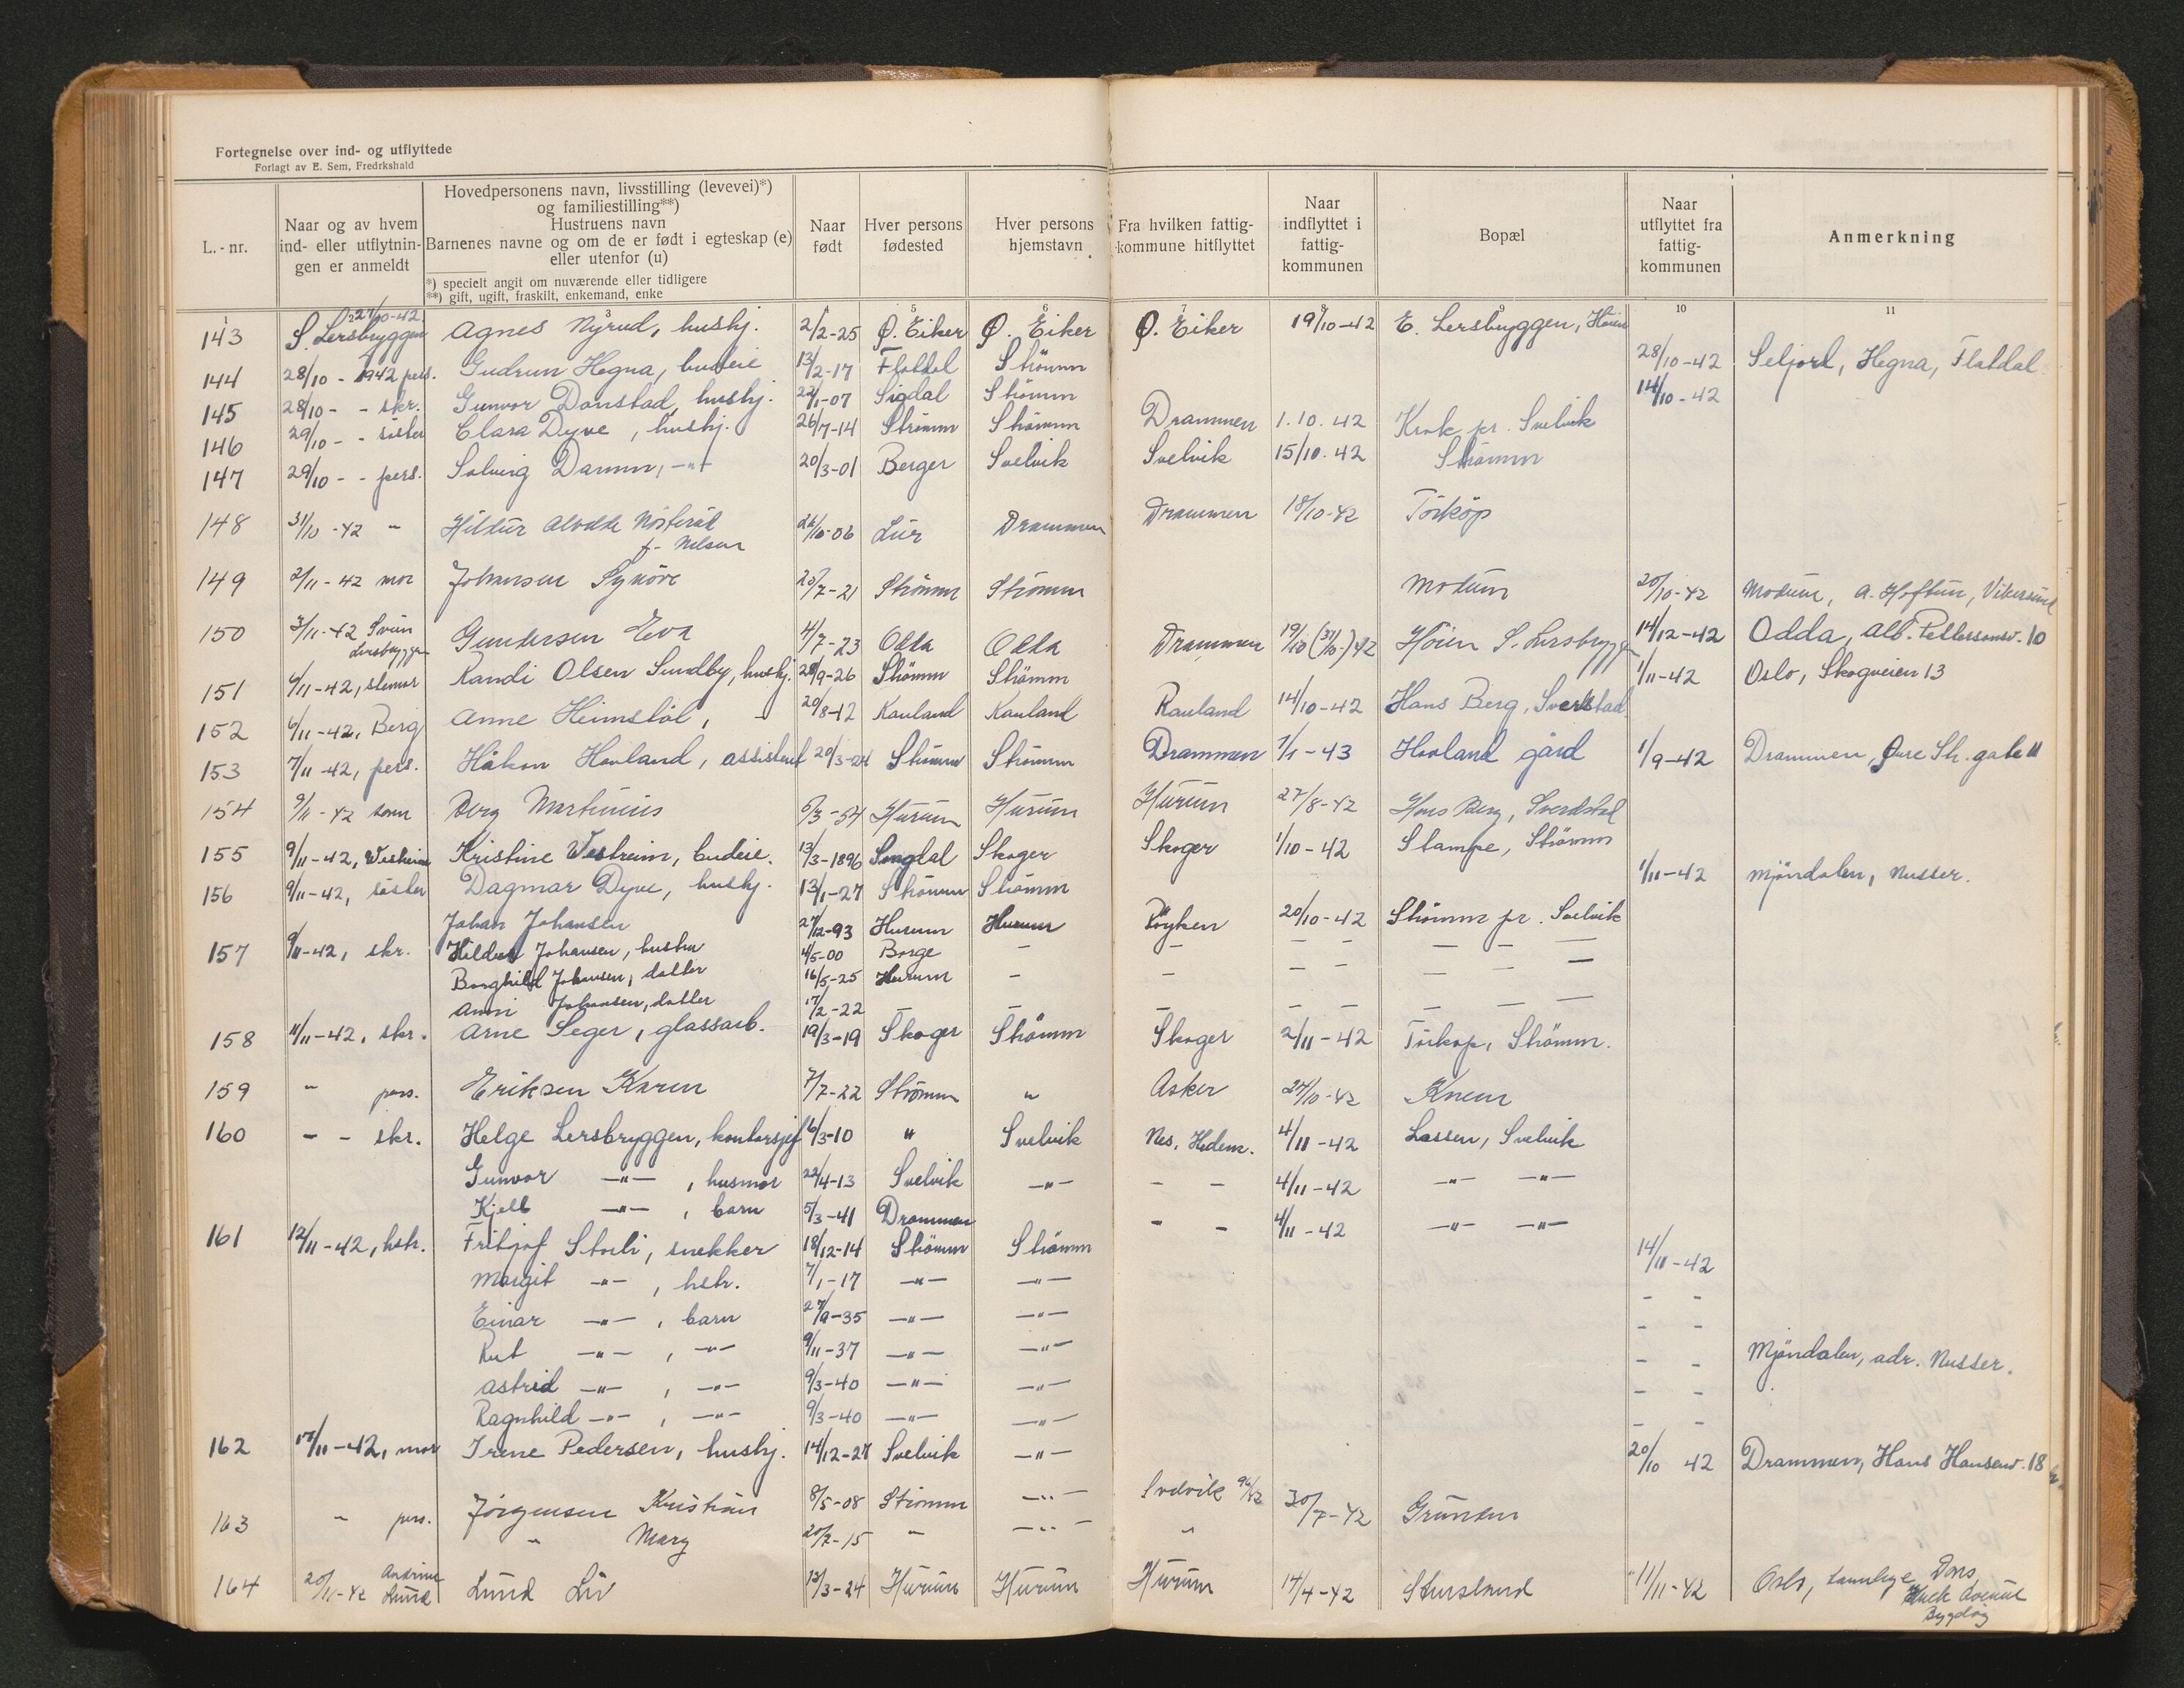 Fortegnelse over ind- og utflyttede
Forlagt av E. Sem, Fredrkshald
L.-nr.
Naar og av hvem ind- eller utflytningen er anmeldt
Hovedpersonens navn, livsstilling (levevei)*)
og familiestilling**)
Hustruens navn
Barnenes navne og om de er født i egteskap (e)
eller utenfor (u)
*) specielt angit om nuværende eller tidligere
**) gift, ugift, fraskilt, enkemand, enke
Naar født
Hver persons fødested
Hver persons hjemstavn
Fra hvilken fattigkommune hitflyttet
Naar indflyttet i fattigkommunen
Bopæl
Naar utflyttet fra fattigkommunen
Anmerkning
1 3 5 6 7 9 10 11
143 27/10-42 S. Lersbryggen Agnes Nyrud, hushj. 2/2-25 Ø. Eiker Ø. Eiker Ø. Eiker 19/10-42 E. Lersbryggen, Höien
144 28/10 - 1942 pers. Gudrun Hegna, budeie 13/2-17 Flatdal Strömm 28/10-42 Seljord, Hegna, Flatdal
145 28/10 - - skr. Gunvor Danstad, hushj. 22/1-07 Sigdal Strömm 14/10-42
146 29/10 - - söster Clara Dyve, hushj. 26/7-14 Strömm Strömm Drammen 1.10.42 Krok pr. Svelvik
147 29/10 - - pers. Solveig Damm, -"- 20/3-01 Berger Svelvik Svelvik 15/10.42 Strömm
148 31/10-42 " Hildur Alvilde f. Nilsen 26/10-06 Lier Drammen Drammen 18/10-42 Törkop
149 2/11-42 mor Johansen Synöve 20/7-21 Strömm Strömm Modum 20/10-42 Modum, A. Hoftun, Vikersund
150 3/11-42 Svein Lersbryggen Gundersen Eva 4/7-23 Odda Odda Drammen 19/10 (31/10-) 42 Höien S. Lersbryggen 14/12-42 Odda, Alb. Pettersensv. 10
151 6/11-42, stemor Randi Olsen Sundby, hushj. 28/9-26 Strömm Strömm 1/11-42 Oslo, Skogveien 13
152 6/11-42, Berg Anne Heimstöl, - 20/8-12 Rauland Rauland Rauland 14/10-42 Hans Berg, Sverstad
153 7/11-42, pers. Håkon Hovland, assistent 20/3-24 Strömm Strömm Drammen 1/1-43 Hovland gård 1/9-42 Drammen, Øvre St. gate 11
154 9/11-42 sönn Berg Martinius 6/3-54 Hurum Hurum Hurum 27/8-42 Hans Berg, Sverdstad
155 9/11-42, Westheim Kristine Westreim, budeie. 13/3-1896 Sogndal Skoger Skoger 1/10-42 Stampe, Strömm
156 9/11-42, söster Dagmar Dyve, hushj. 13/1-27 Strömm Strömm 1/11-42 Mjöndalen, Nusser.
157 9/11-42, skr. Johan Johansen 27/12-93 Hurum Hurum Röyken 20/10-42 Strömm pr. Svelvik
Hildur Johansen, hustru 4/5-00 Borge - - - - - - -
Borghild Johansen, datter 16/5-25 Hurum - - - - - - -
Anni Johansen, datter 17/2-22 - - - - - - - -
158 11/11-42, skr. Arne Seger, glassarb. 19/3-19 Skoger Strömm Skoger 2/11-42 Törkop, Strömm.
159 " pers. Eriksen Karen 7/7-22 Strömm " Asker 27/10-42 Knem
160 - - skr. Helge Lersbryggen, kontorsjef 16/3-10 " Svelvik Nes, Hedem. 4/11-42 Lassen, Svelvik
Gunvor -"-, husmor 22/4-13 Svelvik -"- - - 4/11-42 -"- -"-
Kjell -"-, barn 5/3-41 Drammen - - 4/11-42 -"- -"-
161 12/11-42, hstr. Fritjof Storli, snekker 18/12-14 Strömm Strömm 14/11-42
Margit -"-, hstr. 7/1-17 -"- -"- - -
Einar -"-, barn 27/9-35 -"- -"- - -
Rut -"-, -"- 9/11-37 -"- -"- - - Mjöndalen, adr. Nusser.
Astrid -"-, -"- 9/3-40 -"- -"- - -
Ragnhild -"-, -"- 9/3-40 -"- -"- - -
162 17/11-42, mor Irene Pedersen, hushj. 14/12-27 Svelvik -"- 20/10 42 Drammen, Hans Hansensv. 18
163 " pers. Jörgensen Kristian 8/5-08 Strömm -"- Svelvik 30/7-42 Grunden
" Mary 20/7-15 " -"- "
164 20/11-42 Andrine Lund Lund Liv 13/3-24 Hurum Hurum Hurum 14/4-42 11/11-42 Oslo, Dons Huck Avenue Bygdöy